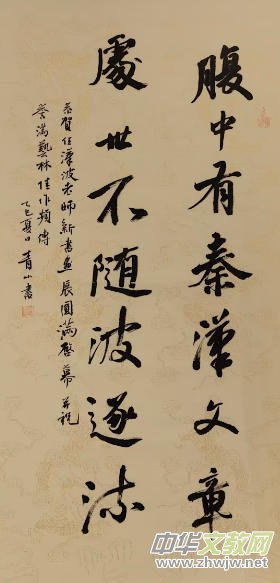 腹中有秦漢文章
處世不随波逐流
恭賀任漢波老師新書畫展圓滿啓幕並祝
譽滿藝林佳作頻傳
乙巳夏日青山書
中华文教网
www.zhwjw.net